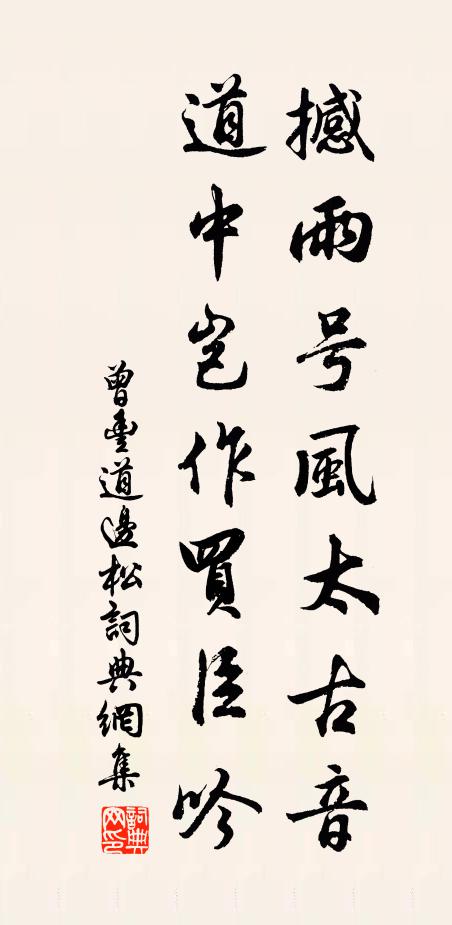 撼雨号風太古音
道中岂作買臣吟
曾豊道邊松詞典網集
詞典網印